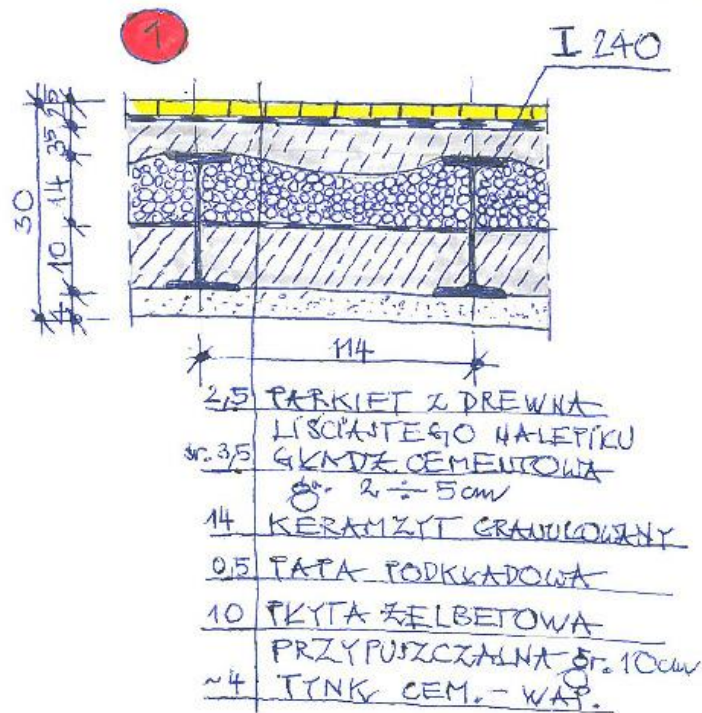 1
I 240
2,5
3⁵
14
10
4
30
114
2,5 PARKIET Z DREWNA
LIŚCIASTEGO NA LEPIKU
śr. 3,5 GŁADŹ CEMENTOWA
gr. 2 ÷ 5 cm
14 KERAMZYT GRANULOWANY
0,5 PAPA PODKŁADOWA
10 PŁYTA ŻELBETOWA
PRZYPUSZCZALNA gr. 10 cm
~4 TYNK CEM. - WAP.